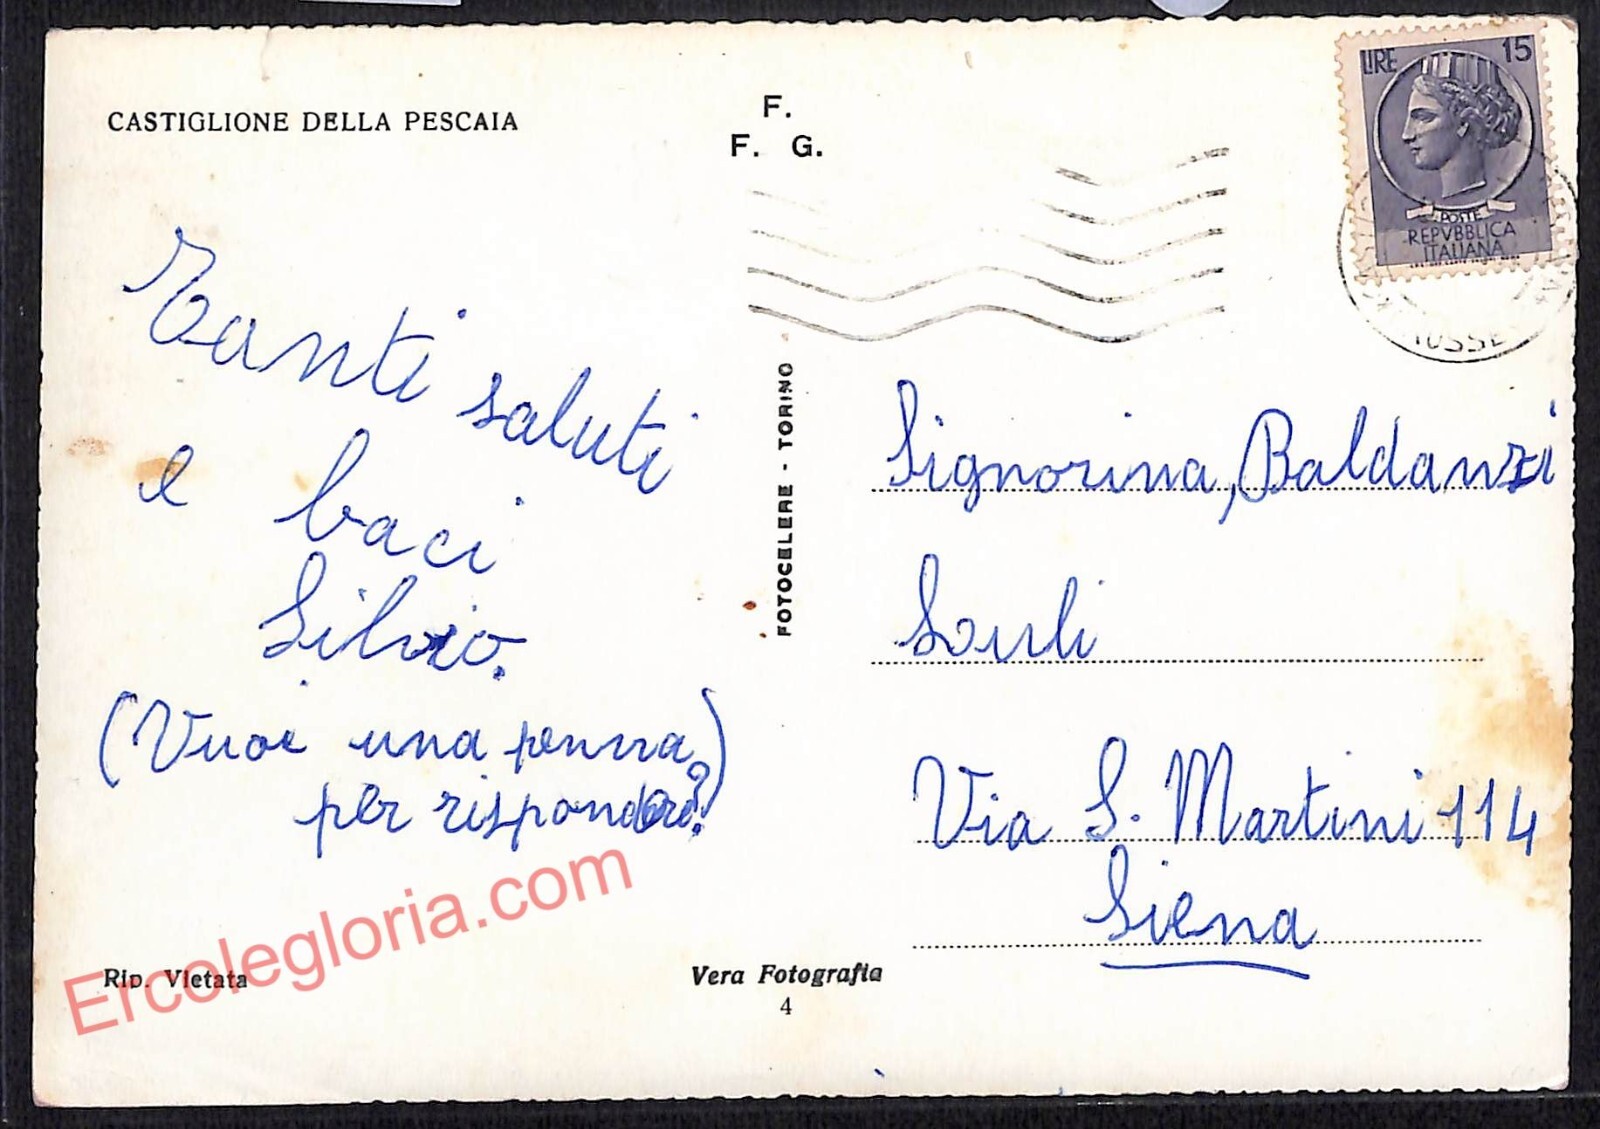 CASTIGLIONE DELLA PESCAIA
F.
F. G.
LIRE 15
POSTE
REPVBBLICA
ITALIANA
Tanti saluti
e baci
Silvio.
(Vuoi una penna
per rispondere?)
FOTOCELERE - TORINO
Signorina, Baldanzi
Via S. Martini 114
Siena
Rip. Vietata
Vera Fotografia
4
Ercolegloria.com